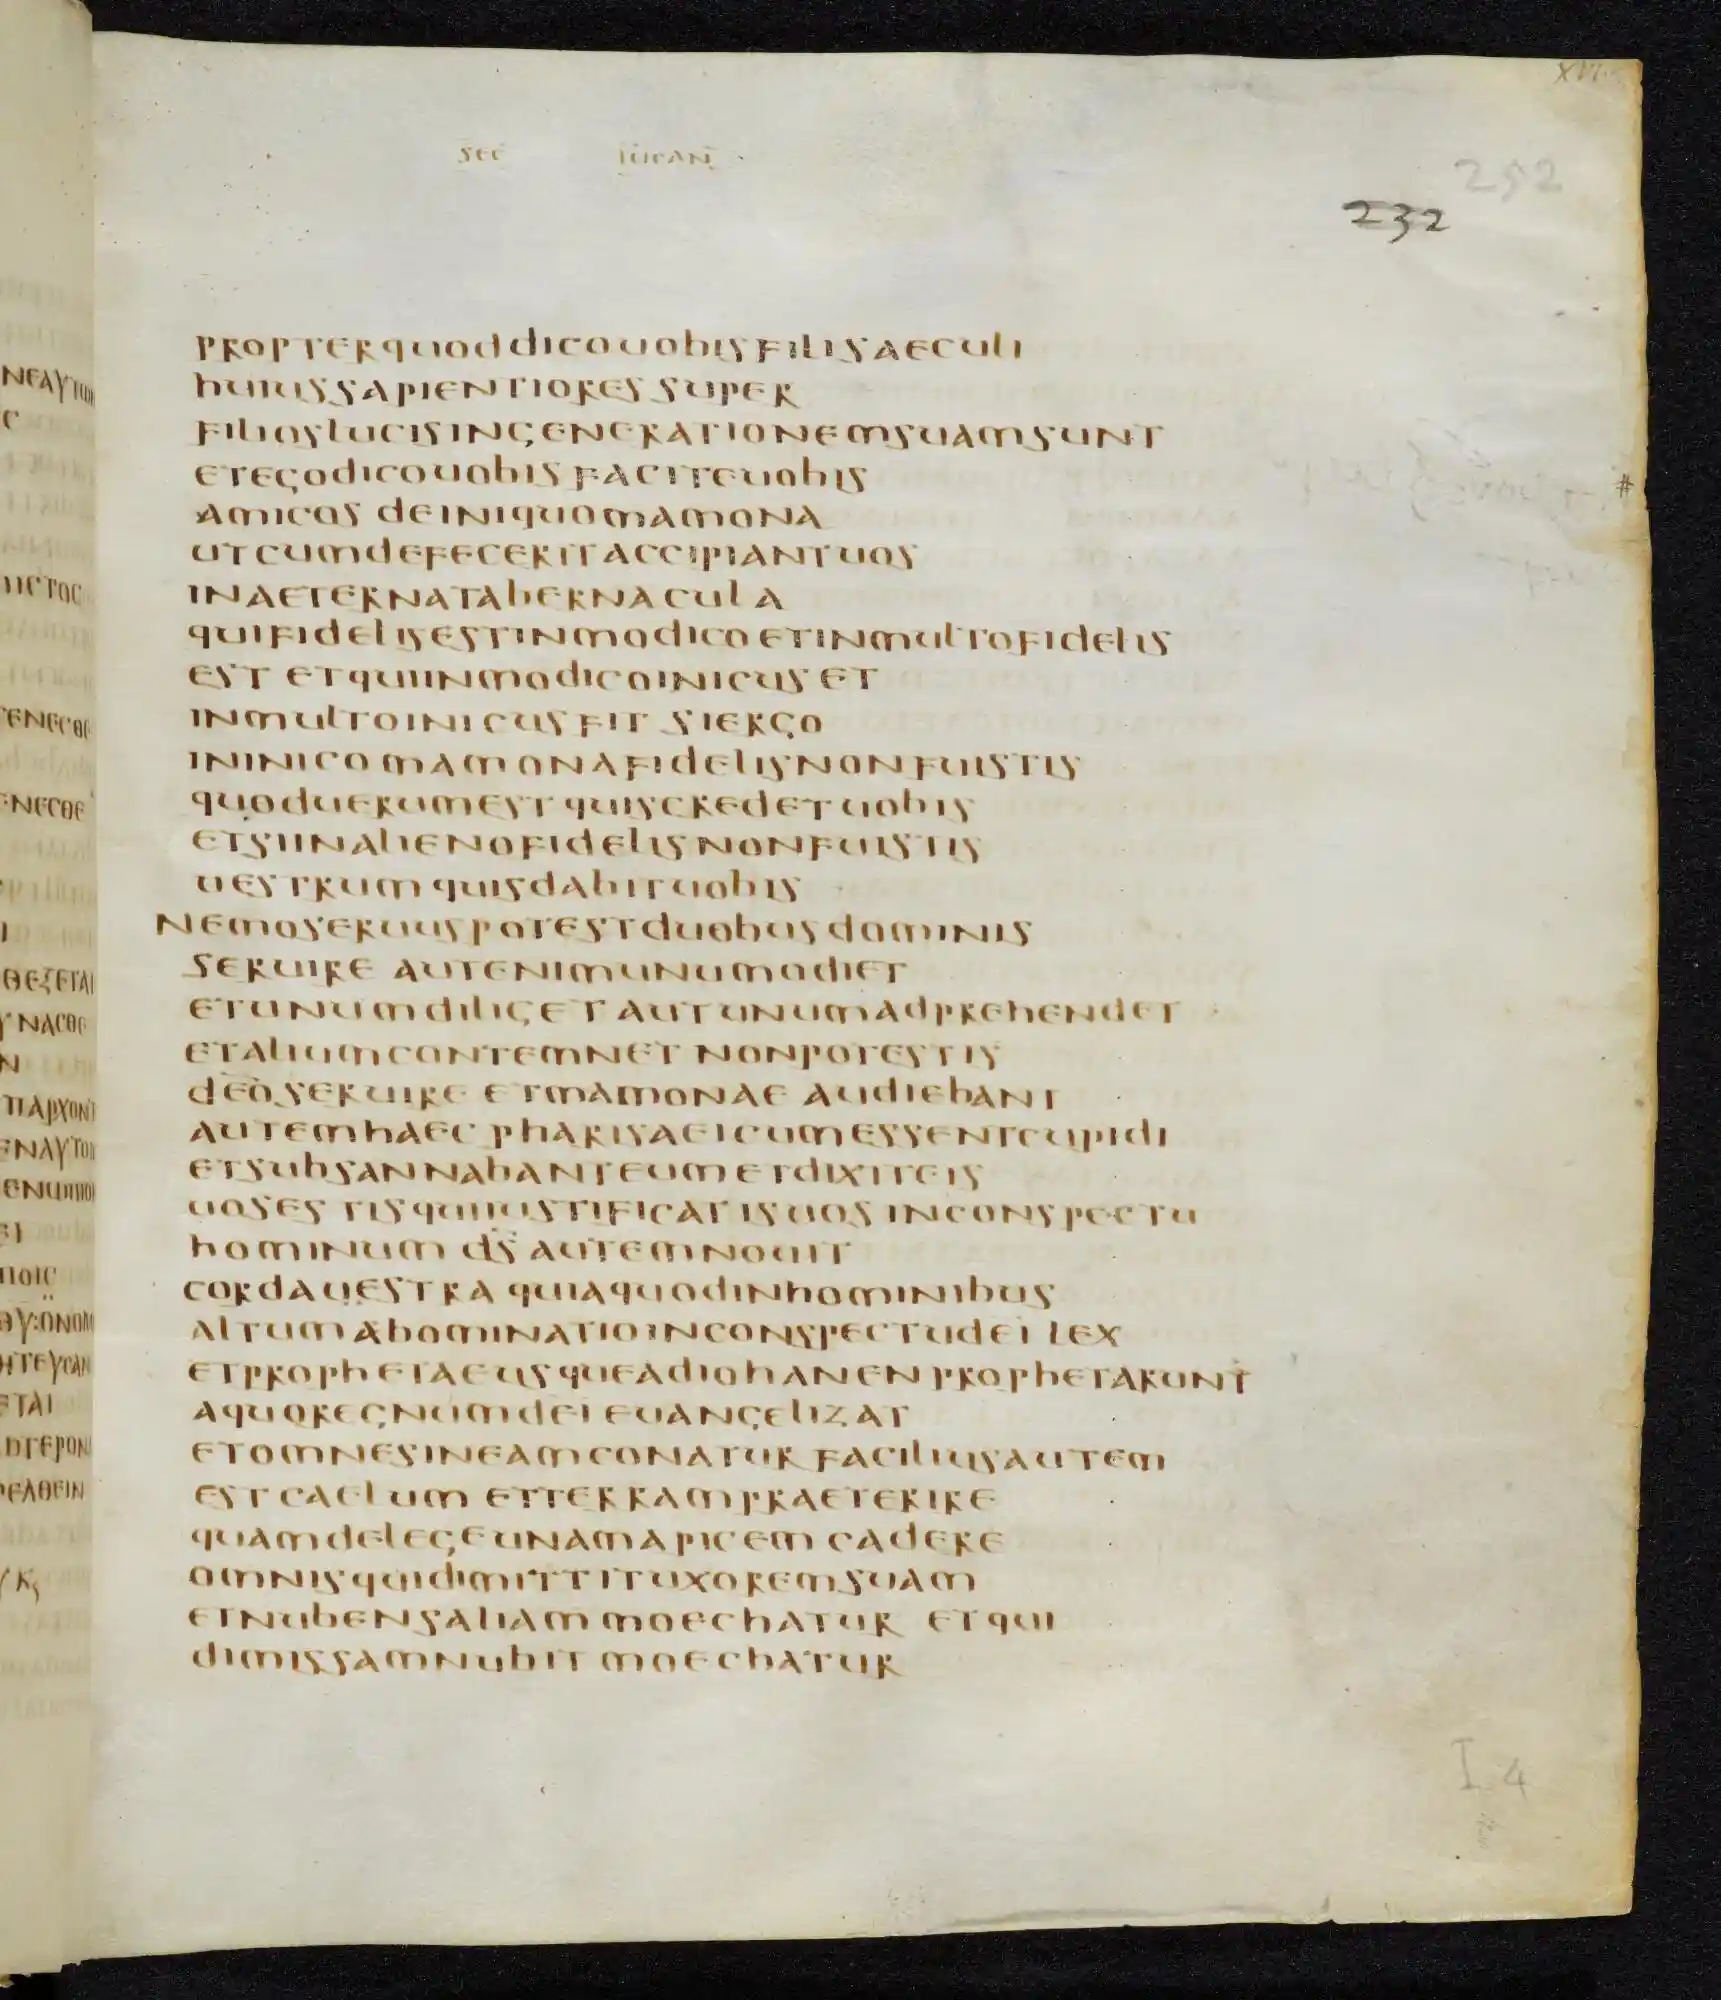 sec lucan
252
232
propterquoddicouobisfilisaeculi
huiussapientioressuper
filioslucisingenerationemsuamsunt
etegodicouobisfaciteuobis
amicos deiniquomamona
utcumdefeceritaccipiantuos
inaeternatabernacula
quifidelisestinmodicoetinmultofidelis
est etquiinmodicoinicus et
inmultoinicusfit siergo
ininicomamonafidelisnonfuistis
quoduerumest quiscredetuobis
etsiinalienofidelisnonfuistis
uestrum quisdabituobis
nemoseruuspotestduobusdominis
seruire autenimunumodiet
etunumdiliget autunumadprehendet
etaliumcontemnet nonpotestis
deoseruire etmamonae audiebant
autemhaec pharisaeicumessentcupidi
etsubsannabanteumetdixiteis
uosestisquiiustificatisuosinconspectu
hominum ds̄ autemnouit
cordauestra quiaquodinhominibus
altumabominatioinconspectudei lex
etprophetaeusqueadiohanenprophetarunt
aquoregnumdei euangelizat
etomnesineamconatur faciliusautem
est caelum etterrampraeterire
quamdelegeunamapicem cadere
omnisquidimittituxoremsuam
etnubensaliam moechatur et qui
dimissamnubit moechatur
I 4
ΝΕΑΥΤΩΝ
С
ΕΝΕСΘΕ
ΘΕΞΕΤΑΙ
Ν
ΠΑΡΧΟΝΤ
ΕΝΑΥΤΟΝ
ΕΝΩΠΙΟΝ
ΕΤΑΙ
ΡΕΛΘΕΙΝ